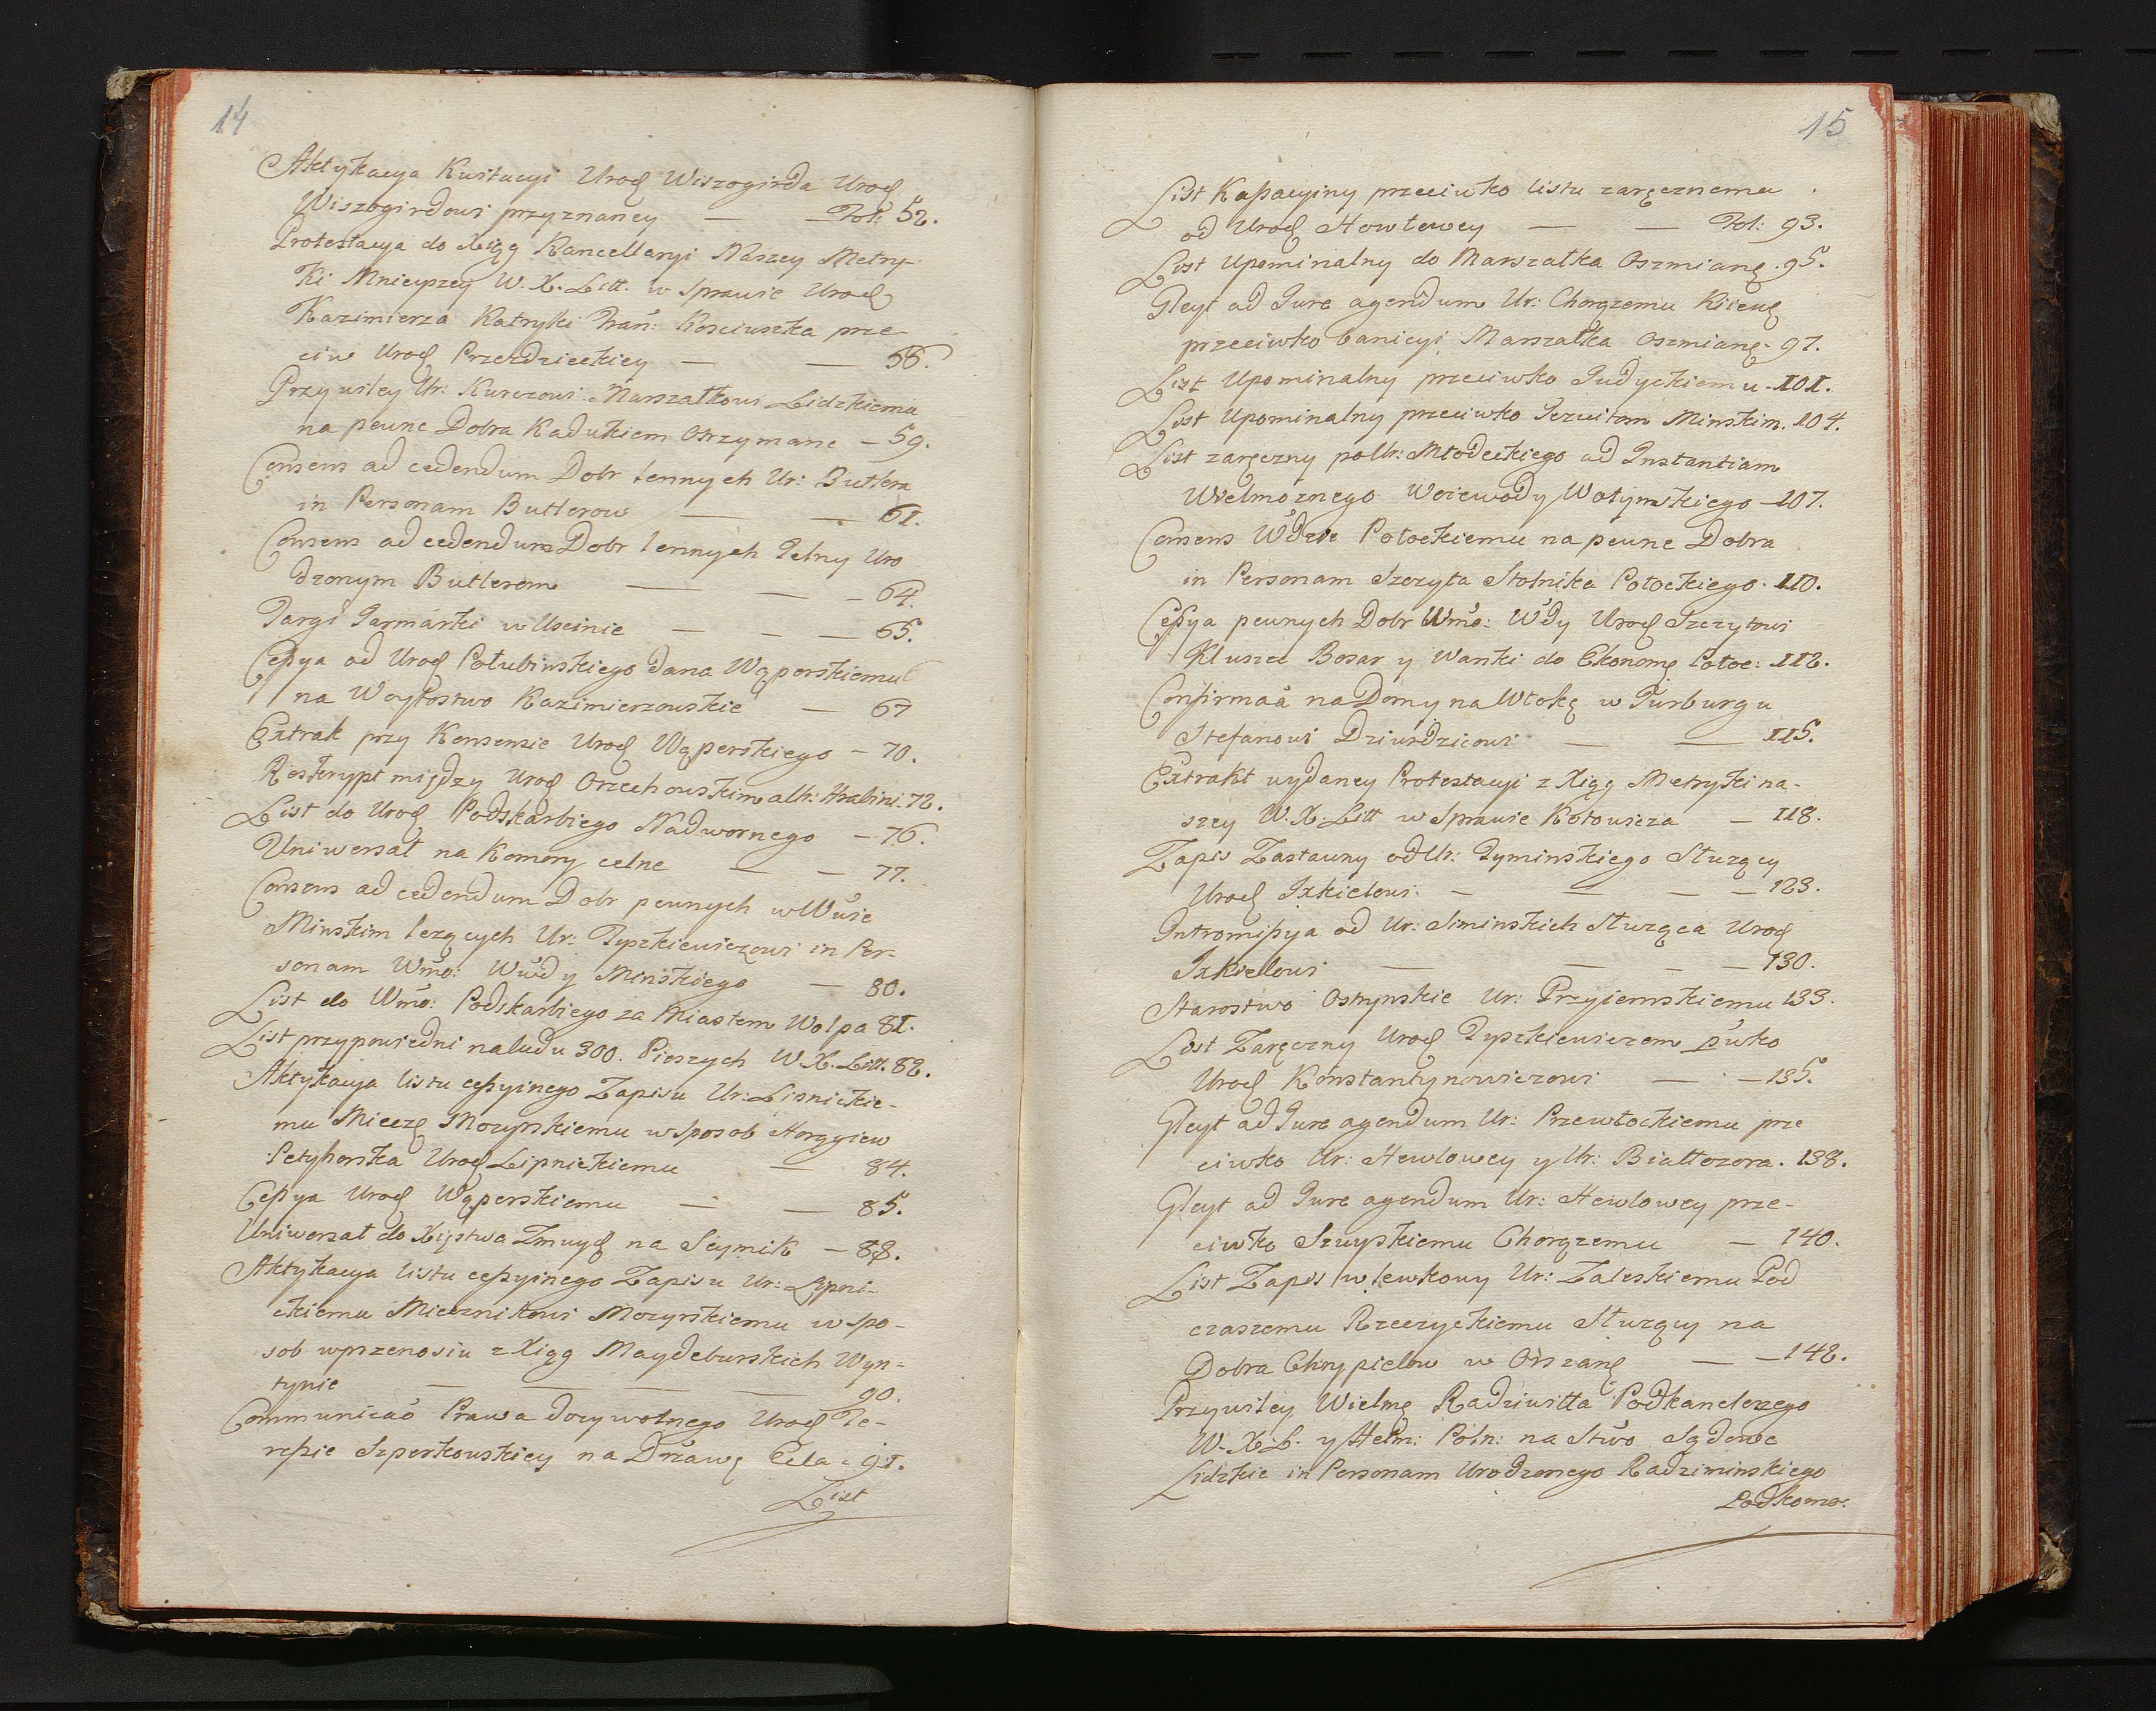 14
Aktykacya Kwitacyi Urod Wiszogirda Urod
Wiszogirdowi przyznaney — Fol: 52.
Protestacya do Xiąg Kancellaryi Naszey Metry-
ki Mnieyszey W. X. Litt. w Sprawie Urod
Kazimierza Kościuszka prze
ciw Urod Przezdzieckiey — — 56.
Przywiley Ur: Kurczowi Marszałkowi Lidzkiemu
na pewne Dobra Kadukiem Otrzymane — 59.
Consens ad cedendum Dobr lennych Ur: Butlera
in Personam Butlerow — — 61.
Consens ad cedendum Dobr lennych Uro
dzonym Butlerom — — — 64.
Targi Jarmarki w Uscinie — — — 65.
Ceßya od Urod Połubinskiego dana Wąperskiemu
na Woytostwo Kazimierzowskie — 67
Extrak przy Konsensie Urod Wąperskiego — 70.
Reskrypt między Urod Orzechowskim 72.
List do Urod Podskarbiego Nadwornego — 76.
Uniwersał na Komory celne — — 77.
Consens ad cedendum Dobr pewnych w
Minskim lezących Ur: Tyszkiewiczowi in Per-
sonam Wmo: Wwdy Minskiego — 80.
List do Wmo: Podskarbiego za Miastem Wolpa 81.
List przypowiedni na ludu 300. Pieszych W. X. Litt. 82.
Aktykacya listu ceßyinego Zapisu Ur: Lipnickie-
mu Miecz Mozyrskiemu w sposob
Petyhorska Urod Lipnickiemu — 84.
Ceßya Urod Wąperskiemu — — 85.
Uniwersał do Xięstwa Zmuyd na Seymik — 88.
Aktykacya listu ceßyinego Zapisu Ur: Lipni-
ckiemu Miecznikowi Mozyrskiemu w spo-
sob wprzenosin z Xiąg Maydeburskich Wyp-
typie — — — — 90.
Communicaō Prawa dozywotnego Urod Te-
reßie Szperkowskiey na 91.
List
15
List Kaßacyiny przeciwko listu zaręcznemu
od Urod Howlowey — — Fol: 93.
List Upominalny do Marszałka Oszmianę. 95.
Gleyt ad Jure agendum Ur: Chorązemu
przeciwko banicyi Marszałka Oszmianę. 97.
List Upominalny przeciwko Judyckiemu. 101.
List Upominalny przeciwko Jezuitom Minskim. 104.
List zaręczny po Ur: Młodeckiego ad Instantiam
Wielmoznego Woiewody Wołynskiego — 107.
Consens Wdzie Połockiemu na pewne Dobra
in Personam Szczyta Stolnika Połockiego. 110.
Ceßya pewnych Dobr Wmo: Wdy Urod Szczytowi
Klusza Bosar y Wanki do Ekonomę Połoc: 112.
Confirmaā na Domy na Włokę w Jurburgu
Stefanowi Dziurdziowi — — 115.
Extrakt wydaney Protestacyi z Xiąg Metryki na-
szey W. X. Litt w Sprawie Kotowicza — 118.
Zapis Zastawny od Ur: Syminskiego Słuzący
Urod Jzkielowi. — — — — 123.
Intromißya od Ur: Siminskich Słuząca Urod
Jzkielowi — — — — 130.
Starostwo Ostrynskie Ur: Przyiemskiemu 133.
List Zaręczny Urod Tyszkiewiczom pwko
Urod Konstantynowiczowi — — 135.
Gleyt ad Jure agendum Ur: Przewłockiemu prze
ciwko Ur: Hewlowey y Ur: Białłozora. 138.
Gleyt ad Jure agendum Ur: Hewlowey prze-
ciwko Szuyskiemu Chorązemu — 140.
List Zapis wlewkowy Ur: Zaleskiemu Pod
czaszemu Rzeczyckiemu Słuzący na
Dobra Chrypielow w Orszanę — — 142.
Przywiley Wielmę Radziwiłła Podkanclerzego
W. X. L. y Hetm: Poln: na Stwo Sądowe
Lidzkie in Personam Urodzonego Radziminskiego
Podkomo: